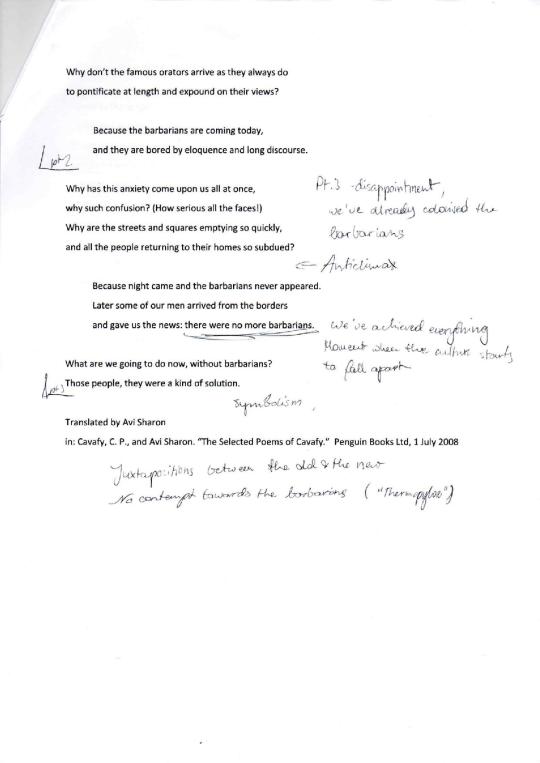 Why don't the famous orators arrive as they always do
to pontificate at length and expound on their views?
Because the barbarians are coming today,
and they are bored by eloquence and long discourse.
pt 2
Why has this anxiety come upon us all at once,
why such confusion? (How serious all the faces!)
Why are the streets and squares emptying so quickly,
and all the people returning to their homes so subdued?
Pt.3 - disappointment,
we've already colonised the
barbarians
← Anticlimax
Because night came and the barbarians never appeared.
Later some of our men arrived from the borders
and gave us the news: there were no more barbarians.
We've achieved everything
Moment when the culture starts
to fall apart
What are we going to do now, without barbarians?
pt 3
Those people, they were a kind of solution.
Symbolism,
Translated by Avi Sharon
in: Cavafy, C. P., and Avi Sharon. "The Selected Poems of Cavafy." Penguin Books Ltd, 1 July 2008
Juxtapositions between the old & the new
No contempt towards the barbarians ("Thermopylae")